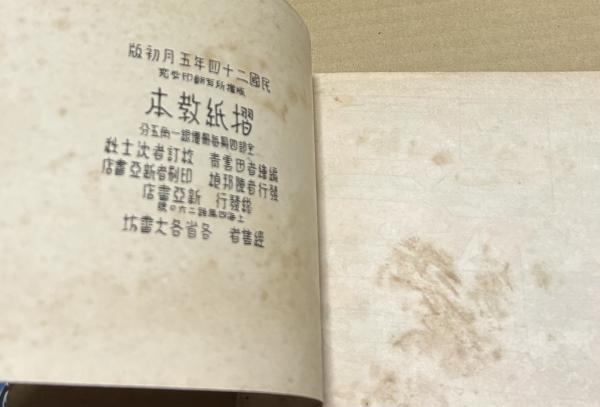 民國二十四年五月初版
版權所有翻印必究
摺紙教本
全部四冊每冊實銀一角五分
編繪者田雲青 校訂者沈士秋
發行者陳邦楨 印刷者新亞書店
總發行 新亞書店
上海四馬路二六〇號
經售者 各省各大書坊